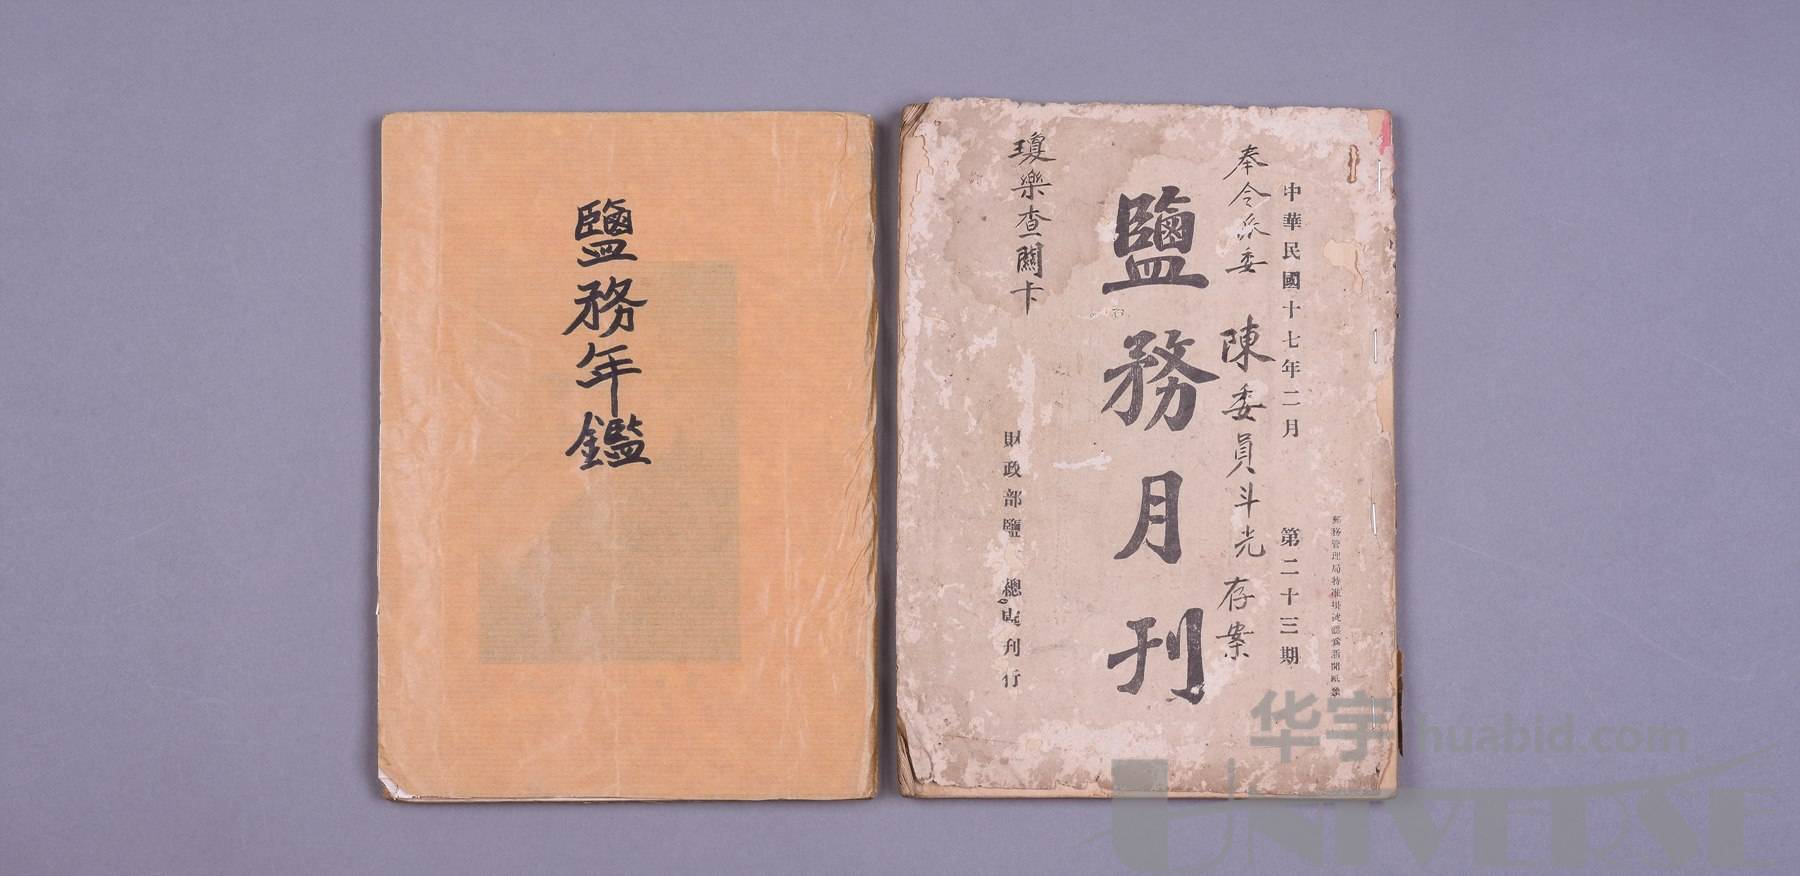 鹽務年鑑
郵務管理局特准掛號認為新聞紙類
中華民國十七年二月 第二十三期
奉令派委 陳委員斗光 存案
鹽務月刊
瓊樂查關卡
財政部鹽 總 刊行
华宇 huabid.com
UNIVERSE